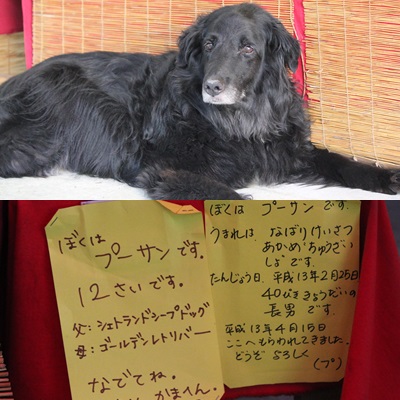 ぼくは
プーサンです。
12さいです。
父：シェトランドシープドッグ
母：ゴールデンレトリバー
なでてね。
かまへん。
ぼくは プーサンです。
うまれは なばりけいさつ
あかめちゅうざい
しょです。
たんじょう日、平成13年2月25日
40ぴききょうだいの
長男です。
平成13年4月15日
ここへもらわれてきました。
どうぞよろしく
(プ)